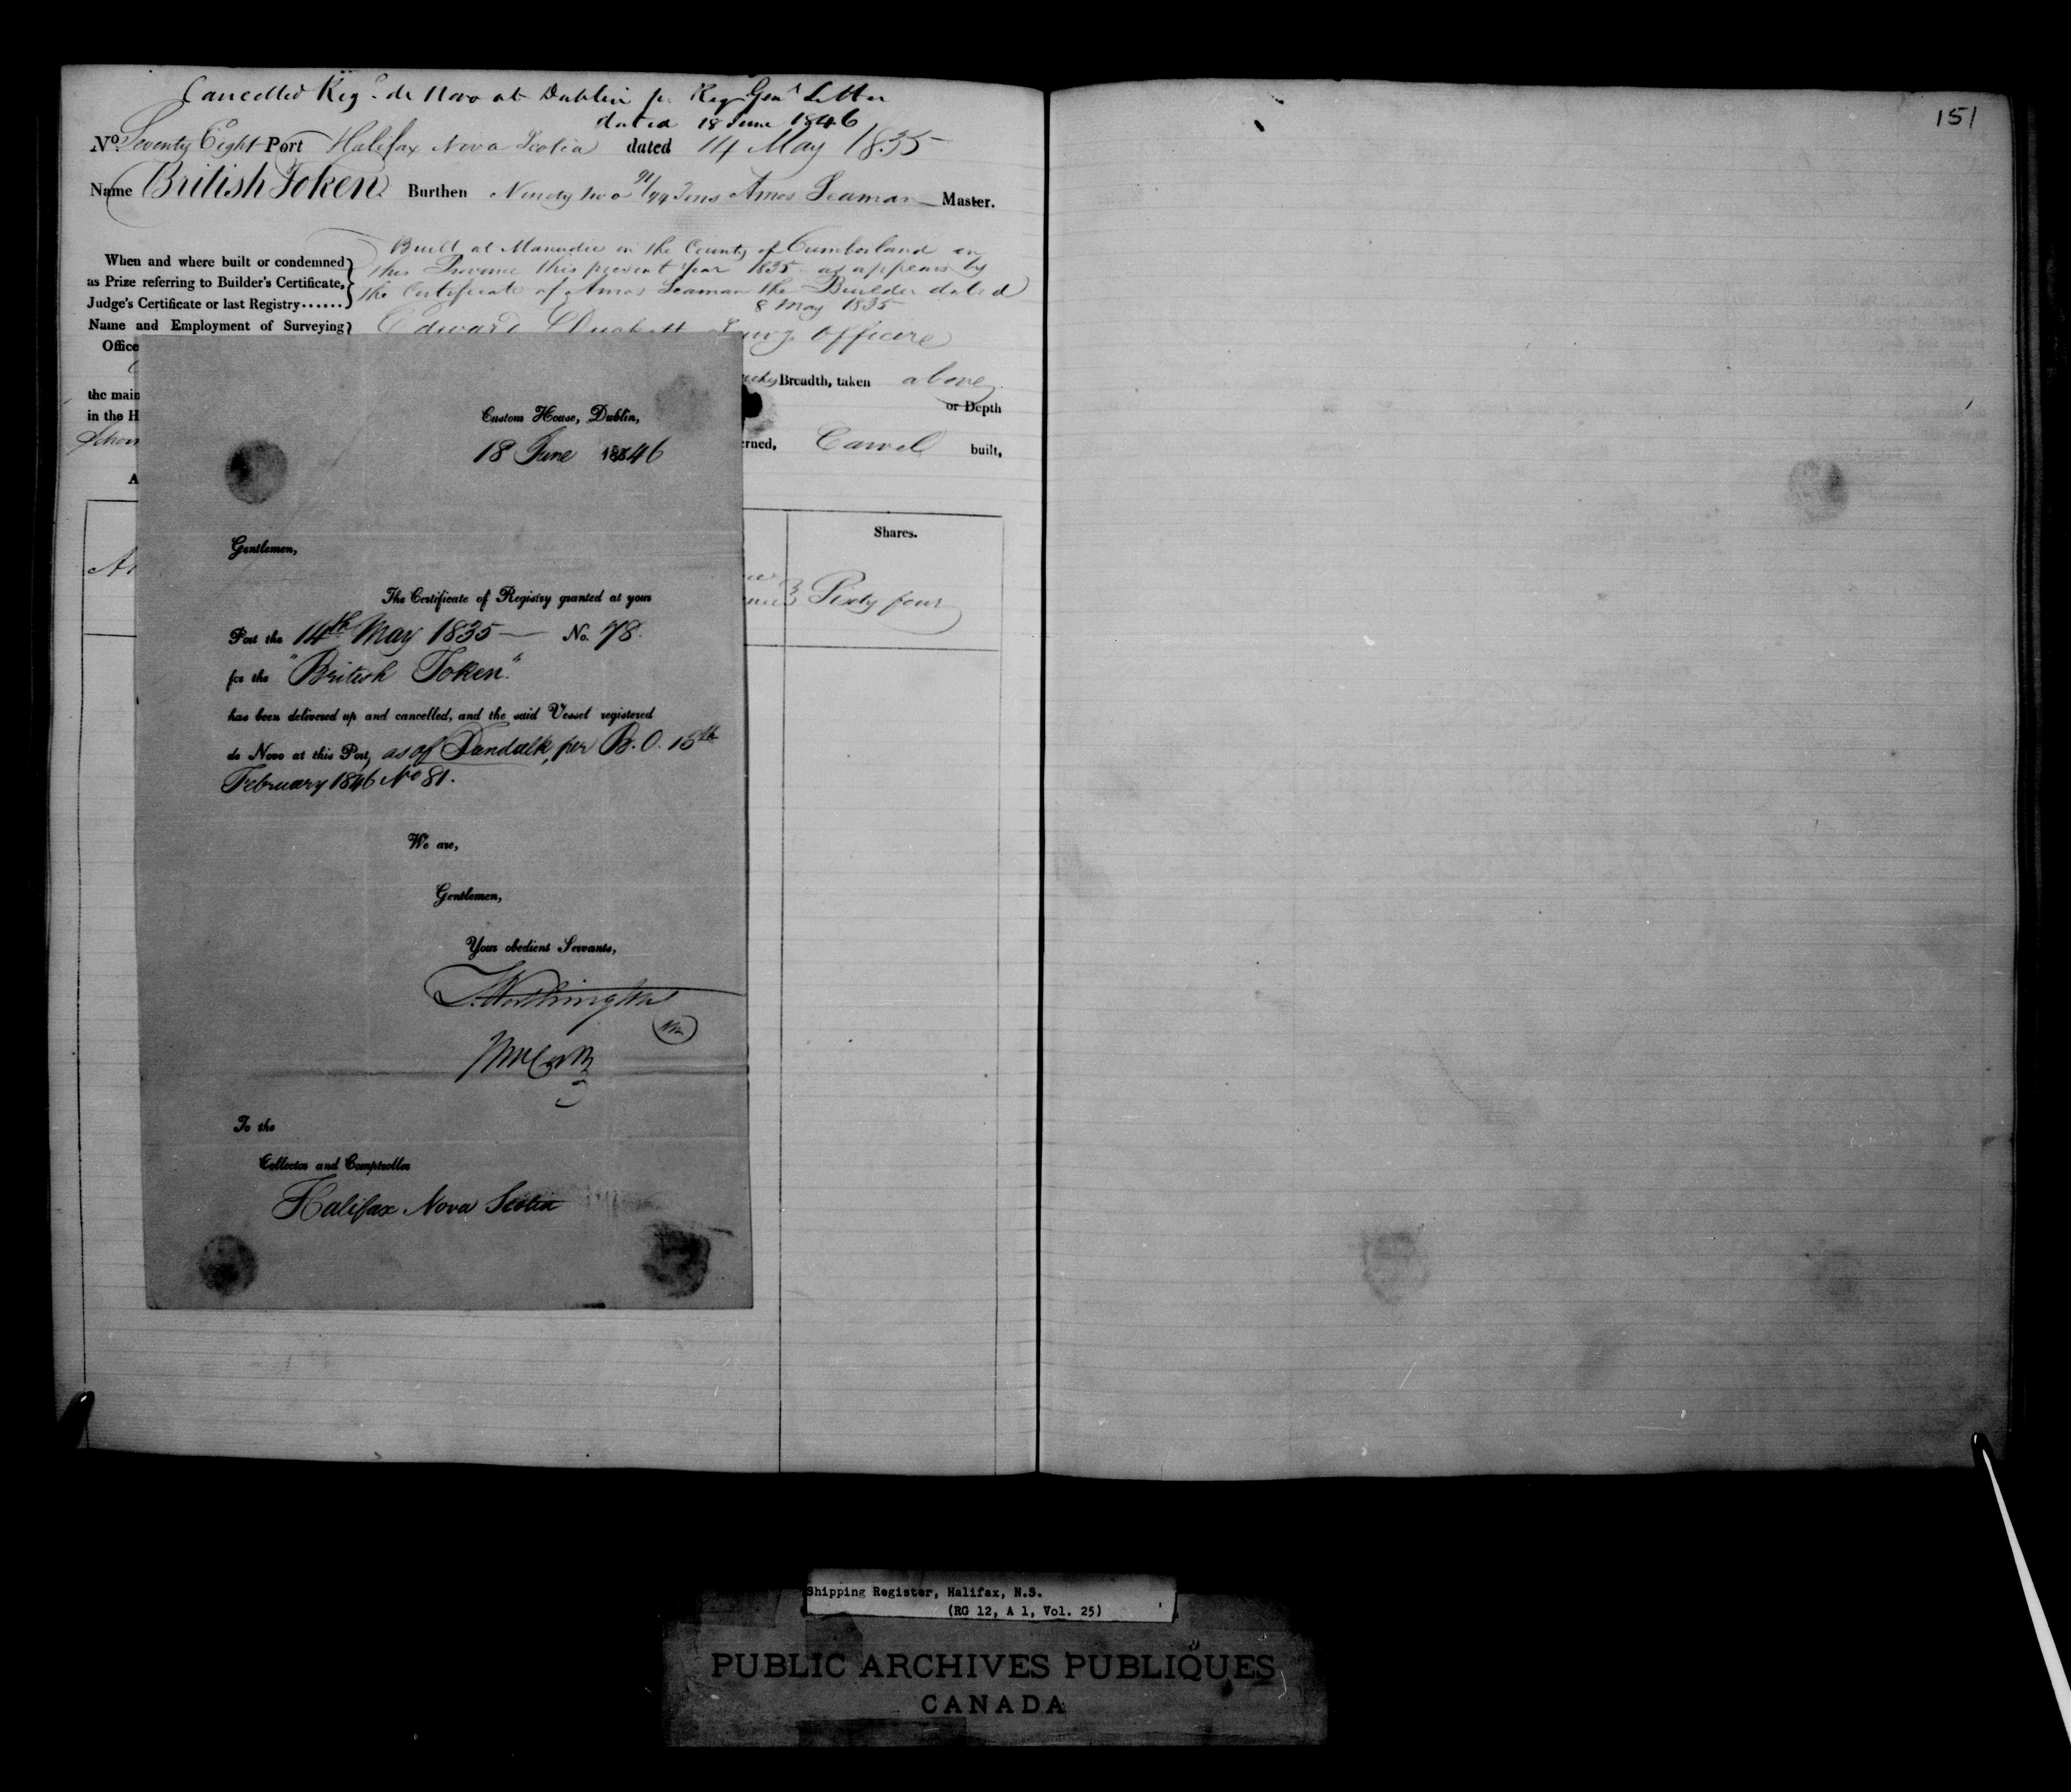 Cancelled Reg. de Novo at Dublin pr Reg Genl Letter
dated 18 June 1846
No. Seventy Eight Port Halifax Nova Scotia dated 14 May 1835
Name British Token Burthen Ninety two 91/94 Tons Amos Seaman Master.
When and where built or condemned
as Prize referring to Builder's Certificate,
Judge's Certificate or last Registry......
Built at in the County of Cumberland in
this Province this present Year 1835 as appears by
the Certificate of Amos Seaman the Builder dated
8 May 1835
Name and Employment of Surveying
Edward Survg. Officer
Office
Breadth, taken above
the main
or Depth
in the H
Schoo
erned, Carvel built,
A
Shares.
Sixty four
Custom House, Dublin,
18 June 1846
Gentlemen,
The Certificate of Registry granted at your
Port the 14th May 1835 — No. 78.
for the "British Token".
has been delivered up and cancelled, and the said Vessel registered
de Novo at this Port, as of Dundalk, per B.O. 13th
February 1846 No 81.
We are,
Gentlemen,
Your obedient Servants,
J. Worthington
To the
Collector and Comptroller
Halifax Nova Scotia
151
Shipping Register, Halifax, N.S.
(RG 12, A 1, Vol. 25)
PUBLIC ARCHIVES PUBLIQUES
CANADA